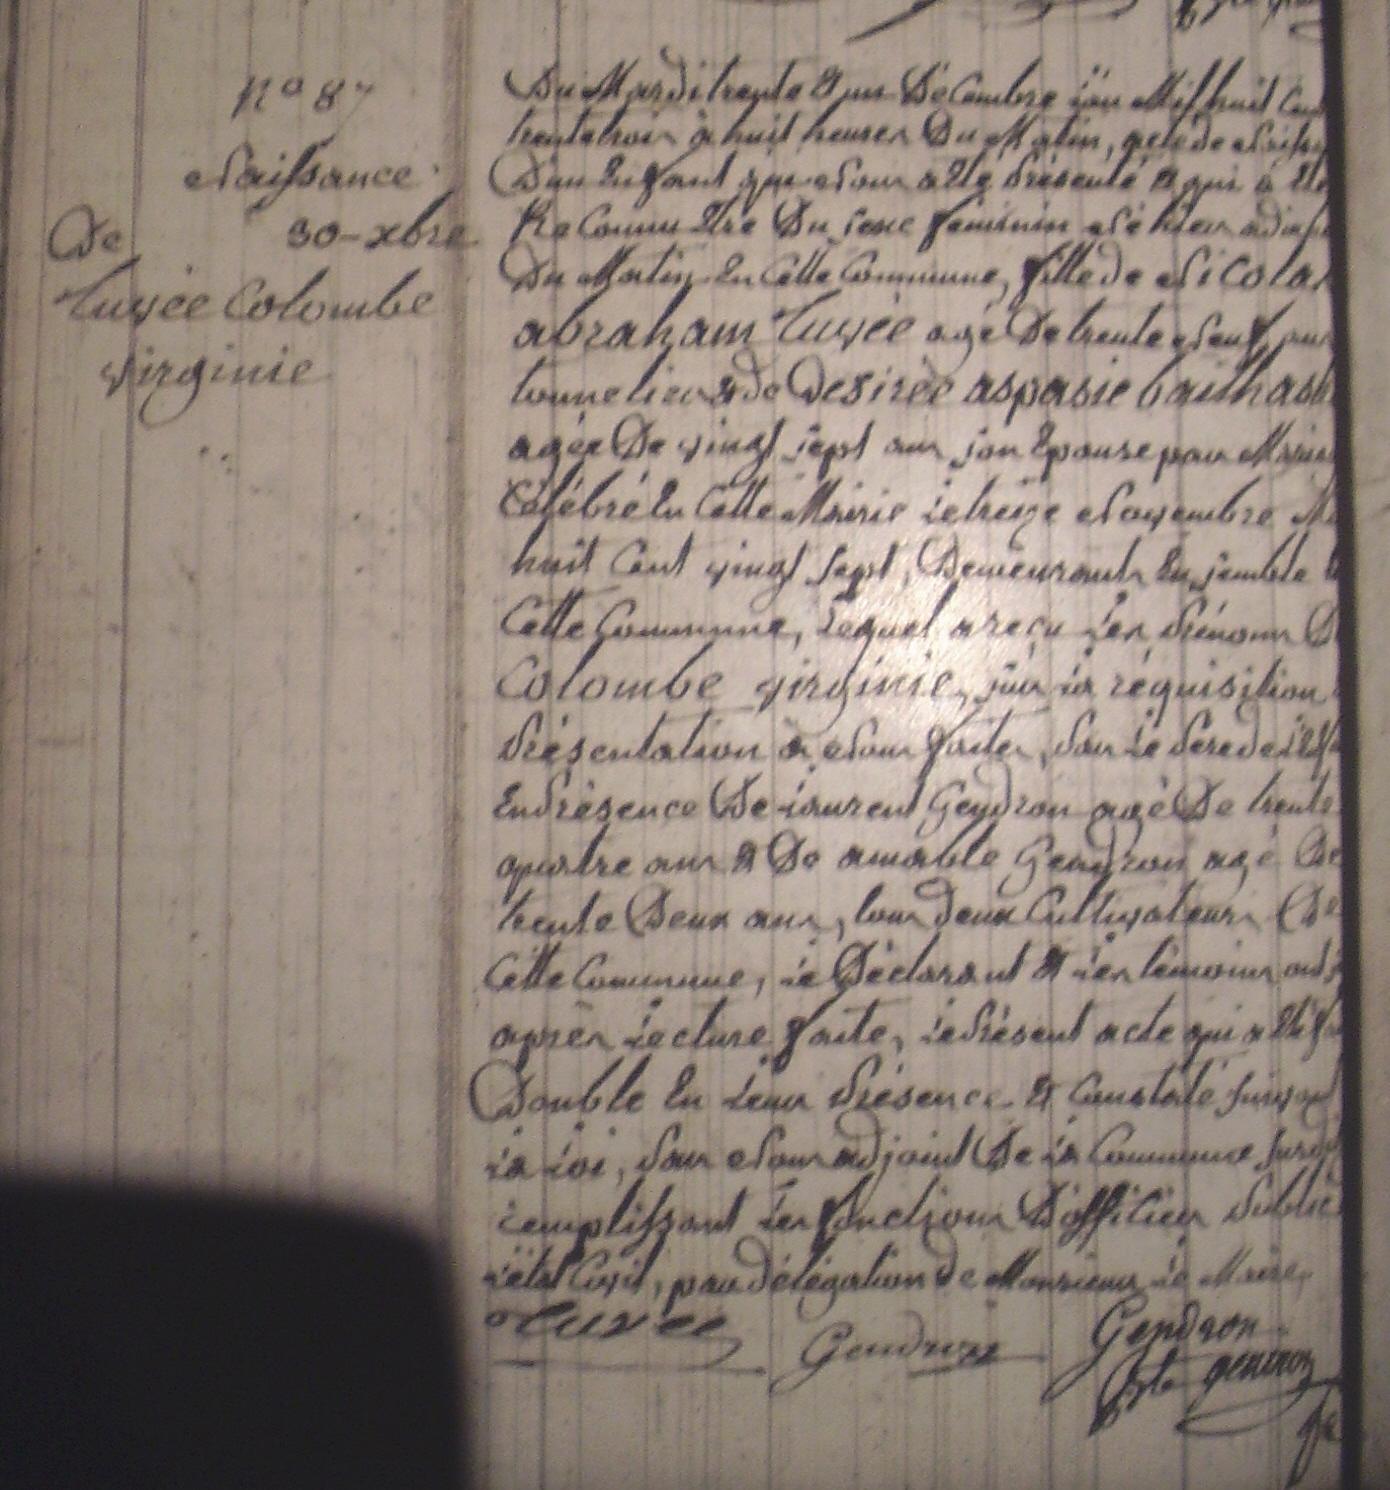 N° 87
Naissance
30 - xbre
De
Luzée Colombe
virginie
Du Mardi trente & un Décembre L'an Mil huit Cen
trente trois à huit heures Du Matin, acte de Naiss
D'un Enfant qui Nous a Eté Présenté & qui à Eté
Reconnu Etre Du sexe féminin Né hier a dix
Du Matin En Cette Commune, fille de Nicolas
abraham Luzée agé De trente Neuf ans
tonnelier & de Desirée aspasie
agée De vingt sept ans son Epouse par Maria
Célébré En Cette Mairie Le treize Novembre Mi
huit Cent vingt sept, Demeurants Ensemble
Cette Commune, Lequel a reçu Les Prénoms De
Colombe virginie, sur La réquisition
Présentation à Nous faites, Par Le Pere de L'Enf
En Présence De Laurent Gendron agé De trente
quatre ans & De amable Gendron agé De
trente Deux ans, tous deux Cultivateurs De
Cette Commune, Le Déclarant & Les témoins ont
après Lecture faite, Le Présent acte qui a Eté
Double En Leur Présence & Constaté suivant
La Loi, Par Nous adjoint De La Commune
remplissant Les fonctions D'officier Public
L'état Civil, par délégation de Monsieur Le Maire.
Luzée
Gendron
Gendron
Bte gendron